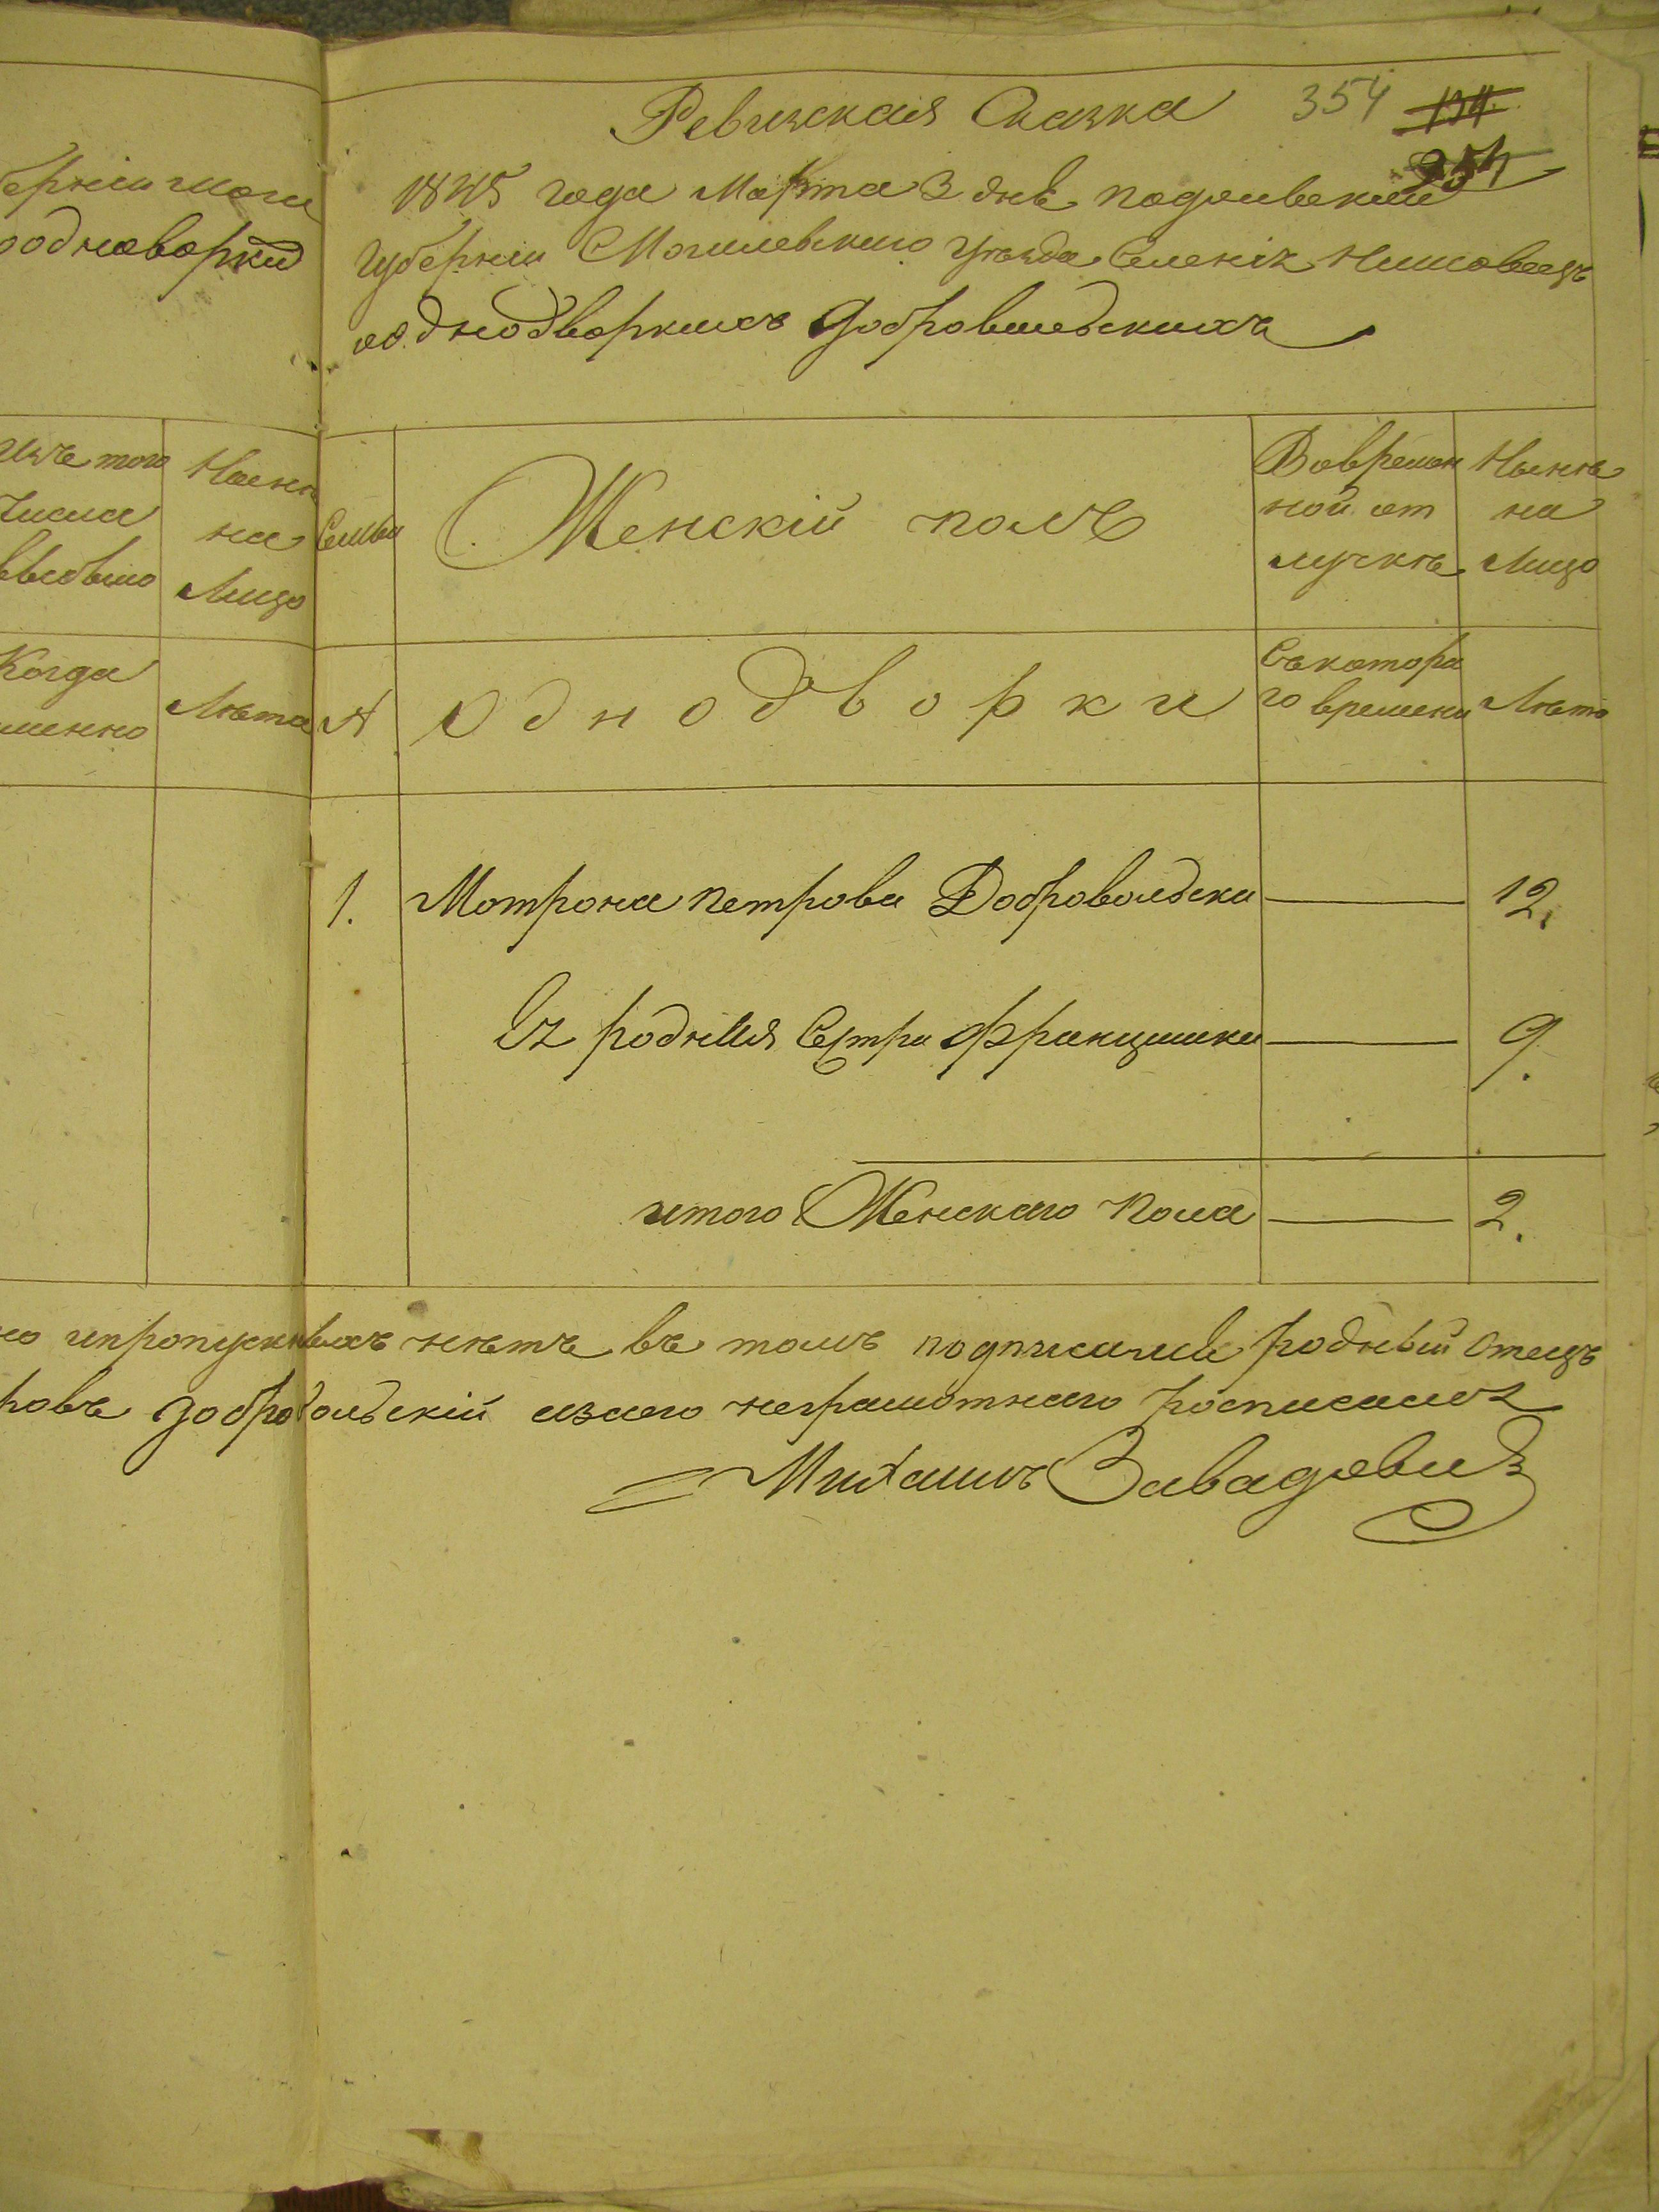 Ревизская Сказка 354
254
1845 года Марта 3 дня Подольской
Губернии Могилевского уезда Селения
однодворкихъ Добровольскихъ
берніи моги
однодворки
изъ того
числа
выбыло
Ныне
на
Лицо
Семьи
Женскій полъ
Вовремен
ной от
лучкѣ
Нынѣ
на
Лицо
Когда
именно
Лѣта
Однодворки
Съкотора
го времени
Лѣта
1. Мотрона Петрова Добровольска 12.
Ея родныя Сестра Францишка 9.
итого Женскаго пола 2.
но ипропускныхъ нѣтъ въ томъ подписался родный Отецъ
ровъ Добровольскій азаего неграмотнаго росписался
Михаилъ Завадовичъ